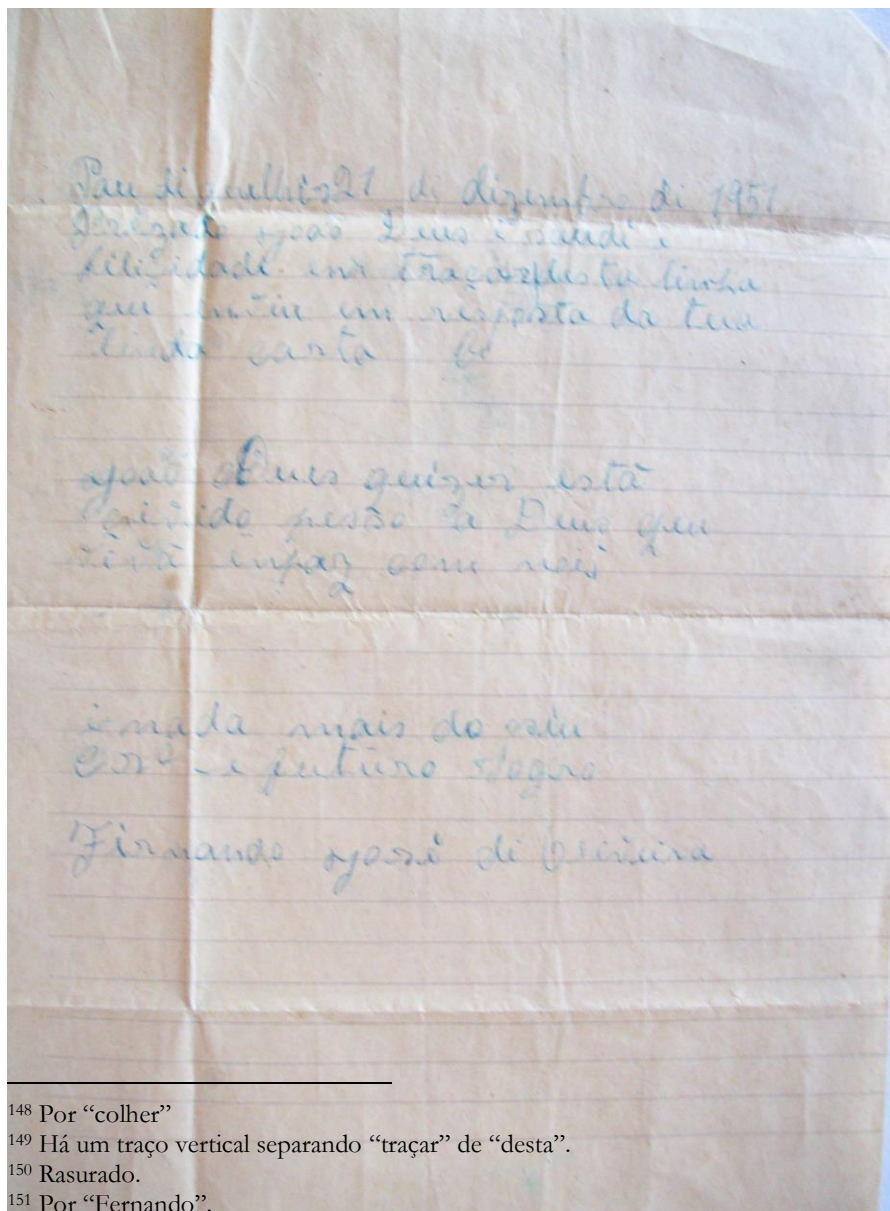 Pau di qulhér 21 di dizembro di 1951
Prezado João Deus i saudi i
filicidadi
qui inviu um risposta da tua
linda carta
João Deus quizer está
pesso a Deus qeu
com nois
i nada mais do seu
i futuro sogro
Firnando José di Oliviura
148 Por “colher”
149 Há um traço vertical separando “traçar” de “desta”.
150 Rasurado.
151 Por “Fernando”.